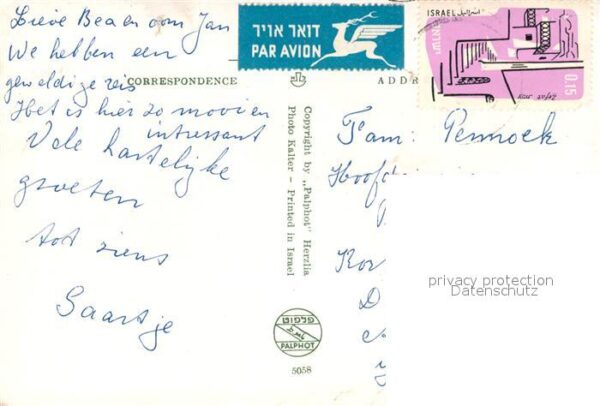 Lieve Beaen oom Jan
We hebben een
geweldige reis
Het is hier zo mooi en
intressant
Vele hartelijke
groeten
tot ziens
Saartje
דואר אויר
PAR AVION
CORRESPONDENCE
ADDR
ISRAEL
ישראל
0.15
Zefat צפת
Copyright by „Palphot" Herzlia
Photo Kalter - Printed in Israel
פלפוט
PALPHOT
5058
Fam: Pennock
Hoofd
Kor
D
privacy protection
Datenschutz